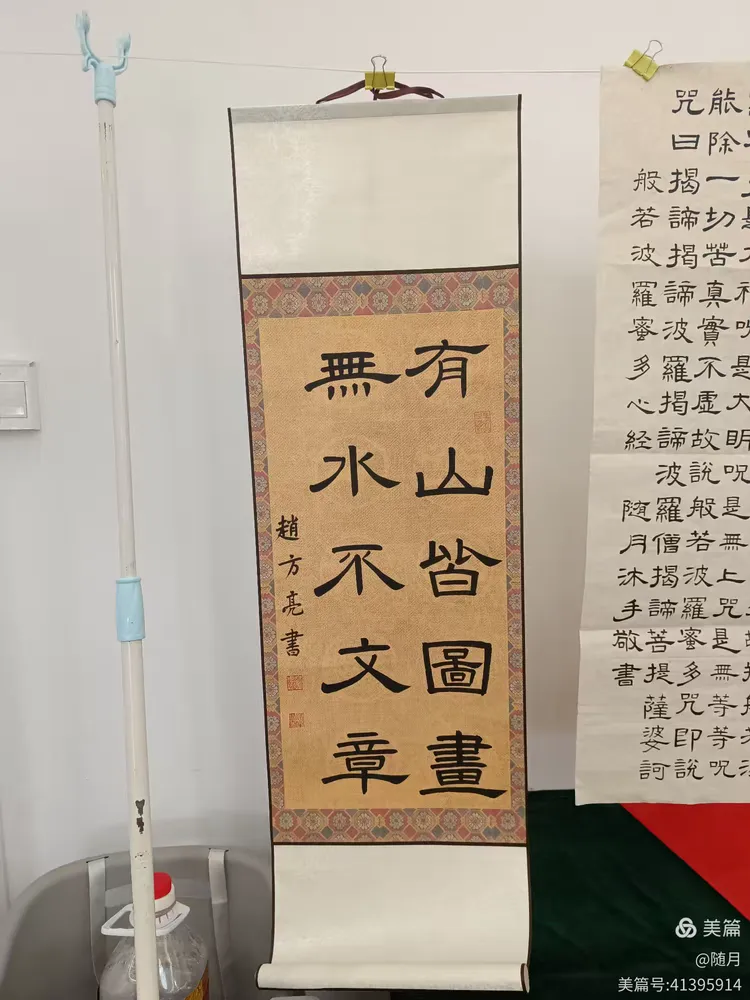 有山皆圖畫
無水不文章
趙方亮書
是大明呪是無上咒是無等等呪
能除一切苦真實不虛故說般若波羅蜜多咒即說
咒曰揭諦揭諦波羅揭諦波羅僧揭諦菩提薩婆訶
般若波羅蜜多心経
随月沐手敬書
美篇
@随月
美篇号:41395914